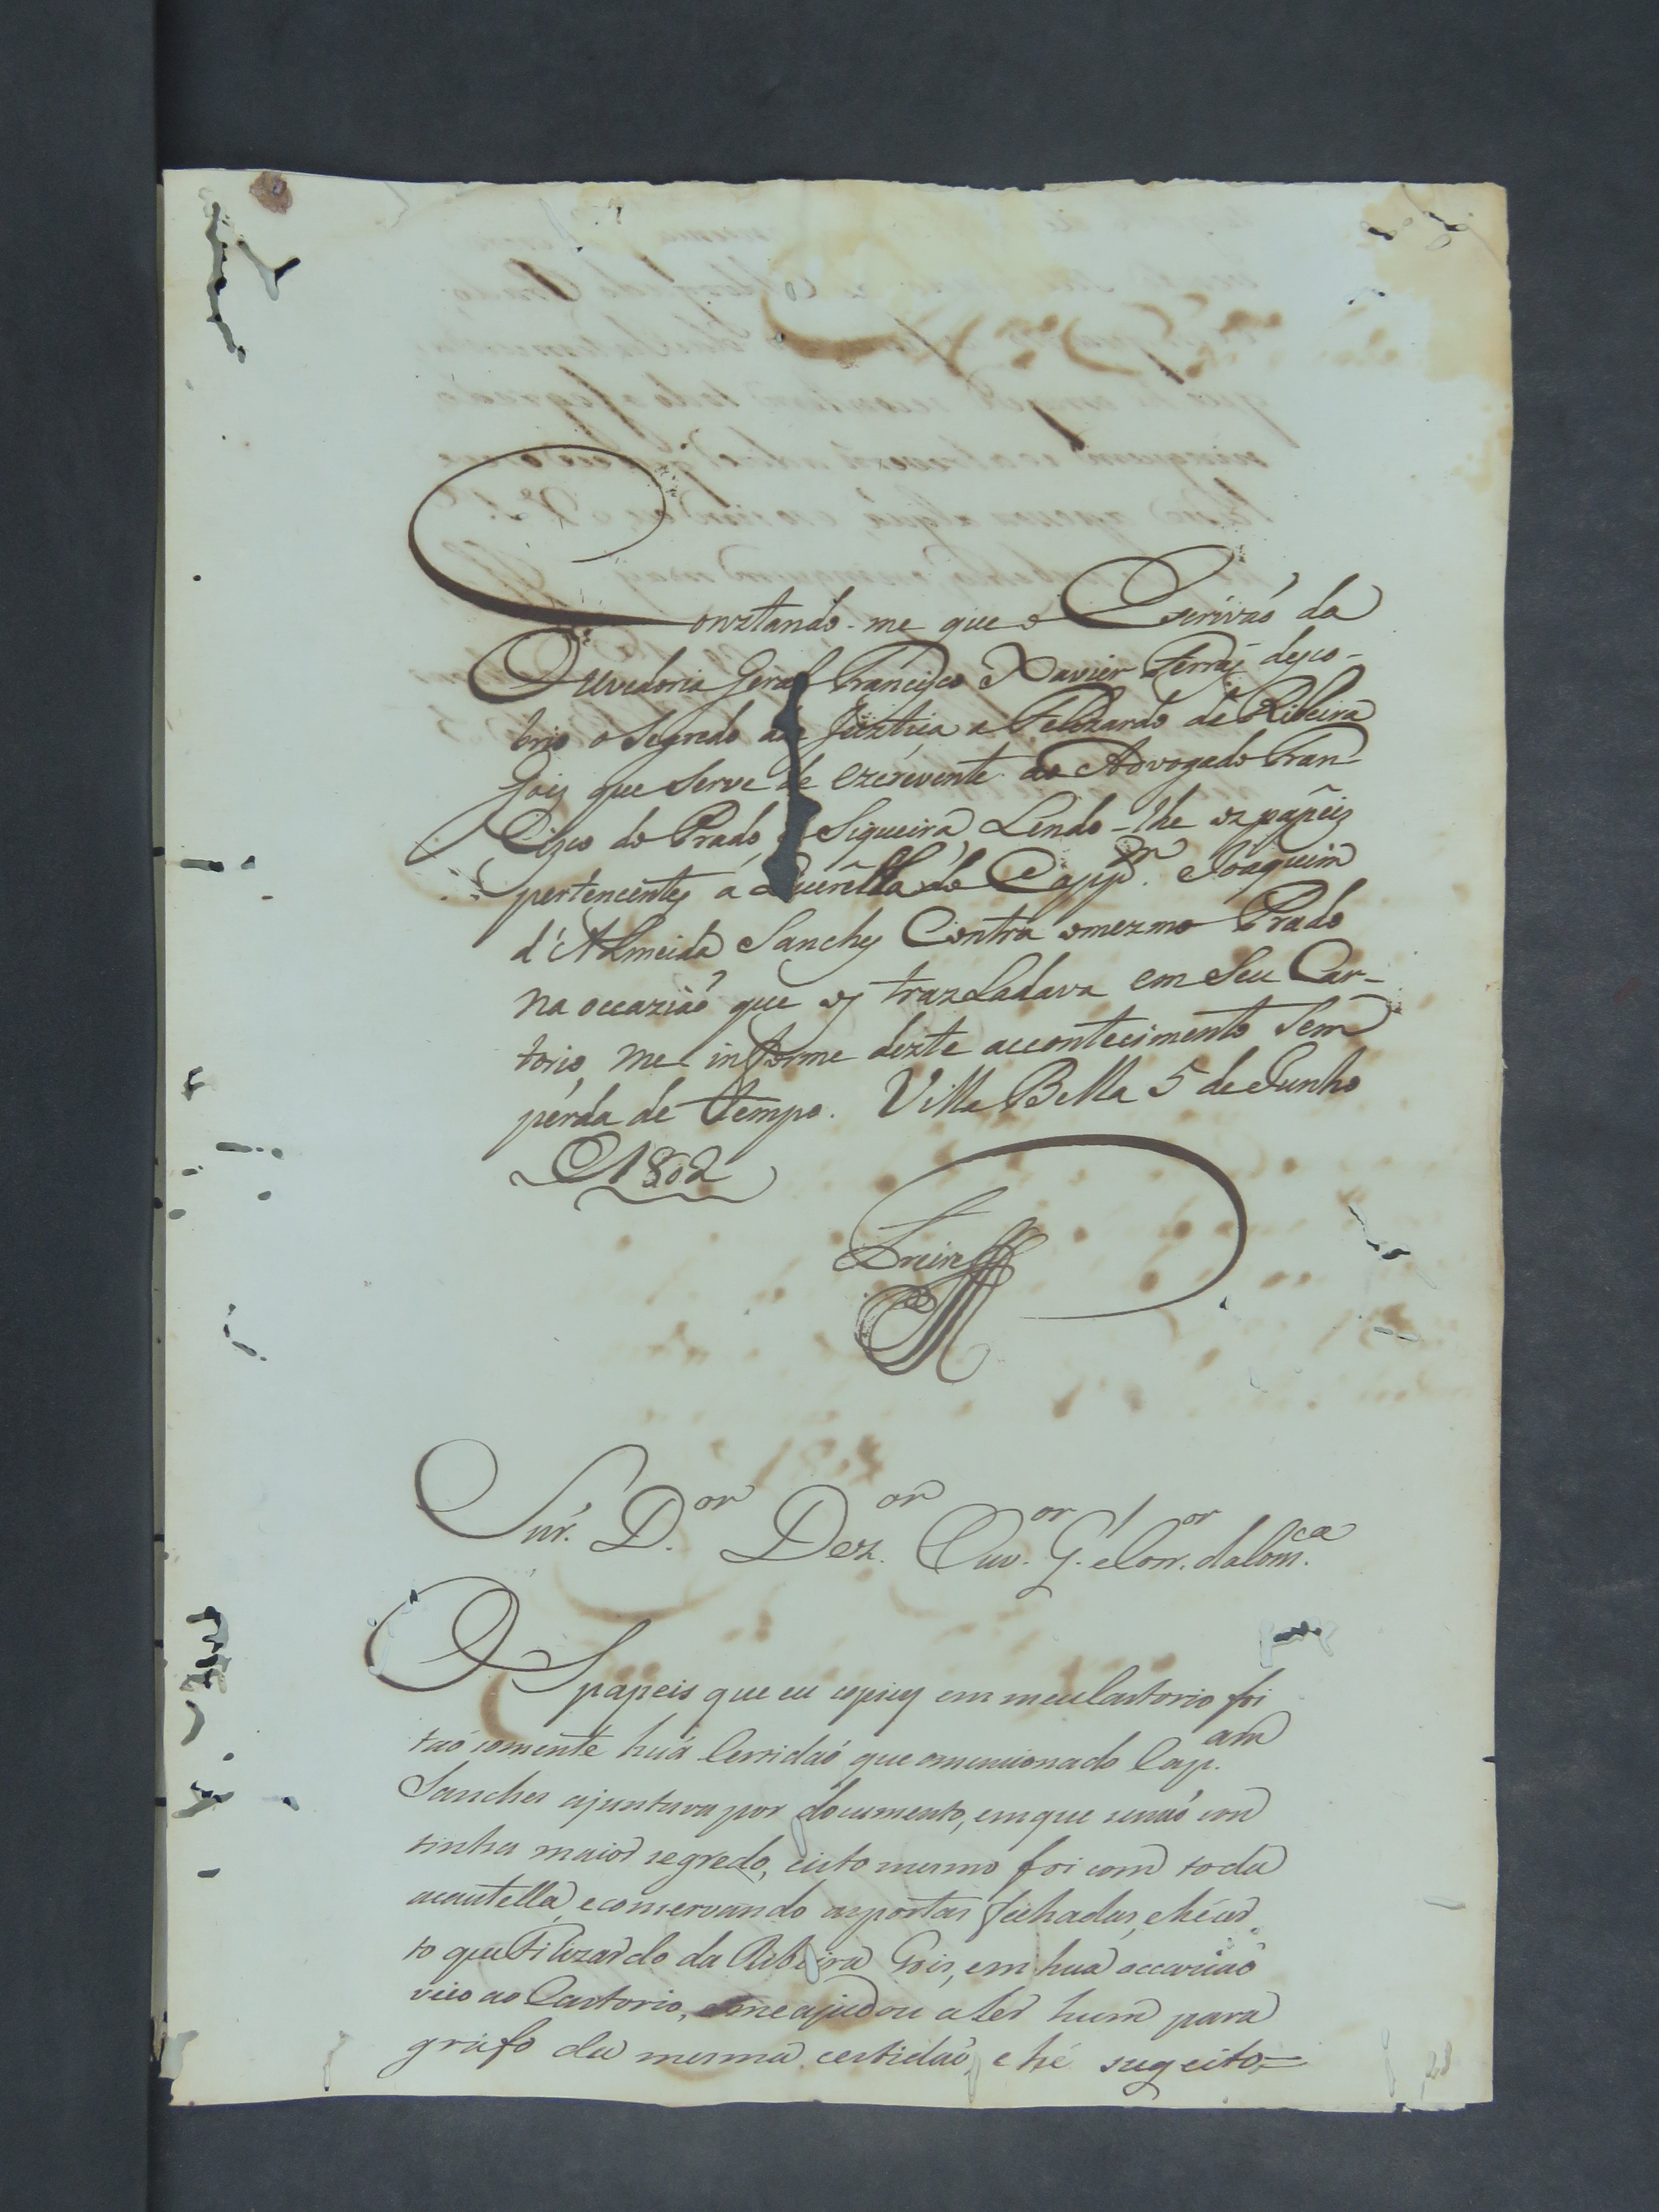 Conztando-me que o Escrivaõ da
Ouvedoria Geral Francisco Xavier Ferraz desco-
brio o Segredo da Juztiça a Felizardo da Ribeira
Goiz que serve de ezcrevente ao Advogado Fran-
Cizco do Prado, e Siqueira, Lendo-lhe oz papeiz
pertencentes á Querella do Capp.m Joaquim
d'Almeida Sanches Contra o mezmo Prado
na occaziaõ que os trazladava em Seu Car-
torio, me informe dezte accontecimento Sem
perda de tempo. Villa Bella 5 de Junho
1802
Freire
Snr. D.or Dez.or Ouv.or G.l e Corr.or da Com.ca
OS papeis que eu copiey em meu Cartorio foi
taõ somente huã Certidaõ que o mencionado Cap.am
Sanches ajuntava por documento, em que se naõ con
tinha maior segredo, e isto mesmo foi com toda
a cautella, e conservando as portas fechadas, e hé cer
to que Filizardo da Ribeira Gois, em huã occaziaõ
veio ao Cartorio, e me ajudou a ler hum para
grafo da mesma certidaõ, e hé sugeito=